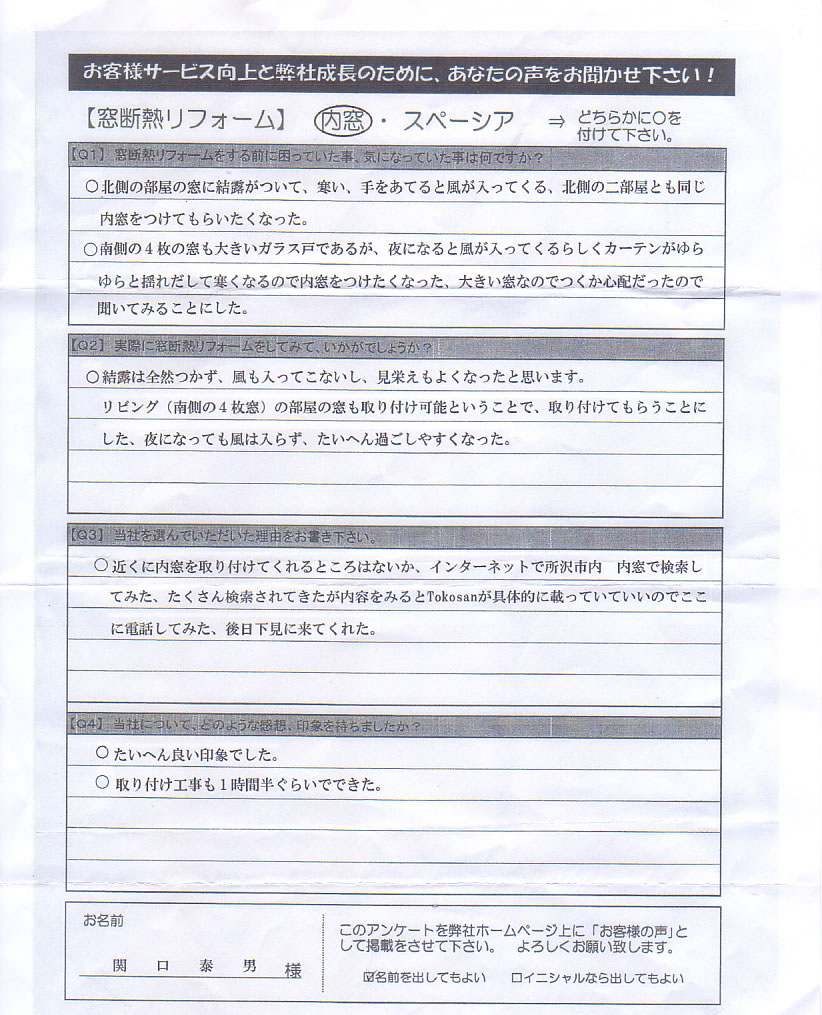 お客様サービス向上と弊社成長のために、あなたの声をお聞かせ下さい！
【窓断熱リフォーム】 内窓・スペーシア ⇒ どちらかに〇を
付けて下さい。
【Q1】 窓断熱リフォームをする前に困っていた事、気になっていた事は何ですか？
○北側の部屋の窓に結露がついて、寒い、手をあてると風が入ってくる、北側の二部屋とも同じ
内窓をつけてもらいたくなった。
○南側の４枚の窓も大きいガラス戸であるが、夜になると風が入ってくるらしくカーテンがゆら
ゆらと揺れだして寒くなるので内窓をつけたくなった、大きい窓なのでつくか心配だったので
聞いてみることにした。
【Q2】 実際に窓断熱リフォームをしてみて、いかがでしょうか？
○結露は全然つかず、風も入ってこないし、見栄えもよくなったと思います。
リビング（南側の４枚窓）の部屋の窓も取り付け可能ということで、取り付けてもらうことに
した、夜になっても風は入らず、たいへん過ごしやすくなった。
【Q3】 当社を選んでいただいた理由をお書き下さい。
○近くに内窓を取り付けてくれるところはないか、インターネットで所沢市内　内窓で検索し
てみた、たくさん検索されてきたが内容をみるとTokosanが具体的に載っていていいのでここ
に電話してみた、後日下見に来てくれた。
【Q4】 当社について、どのような感想、印象を持ちましたか？
○たいへん良い印象でした。
○取り付け工事も１時間半ぐらいでできた。
お名前
関　口　泰　男　様
このアンケートを弊社ホームページ上に「お客様の声」と
して掲載をさせて下さい。　よろしくお願い致します。
☑名前を出してもよい　□イニシャルなら出してもよい